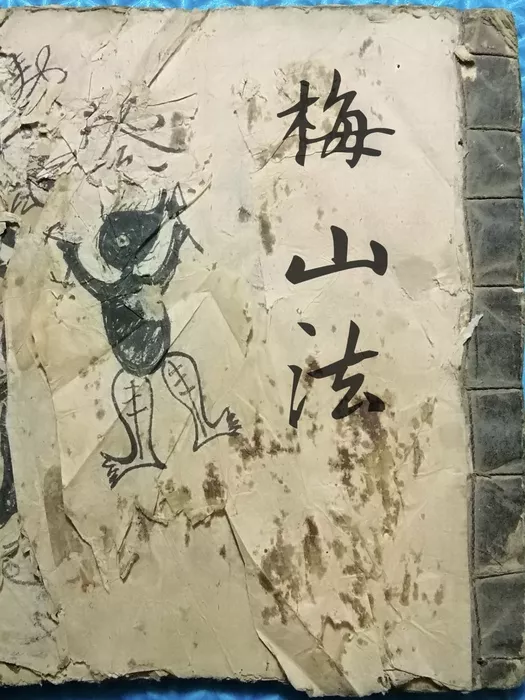 梅山法